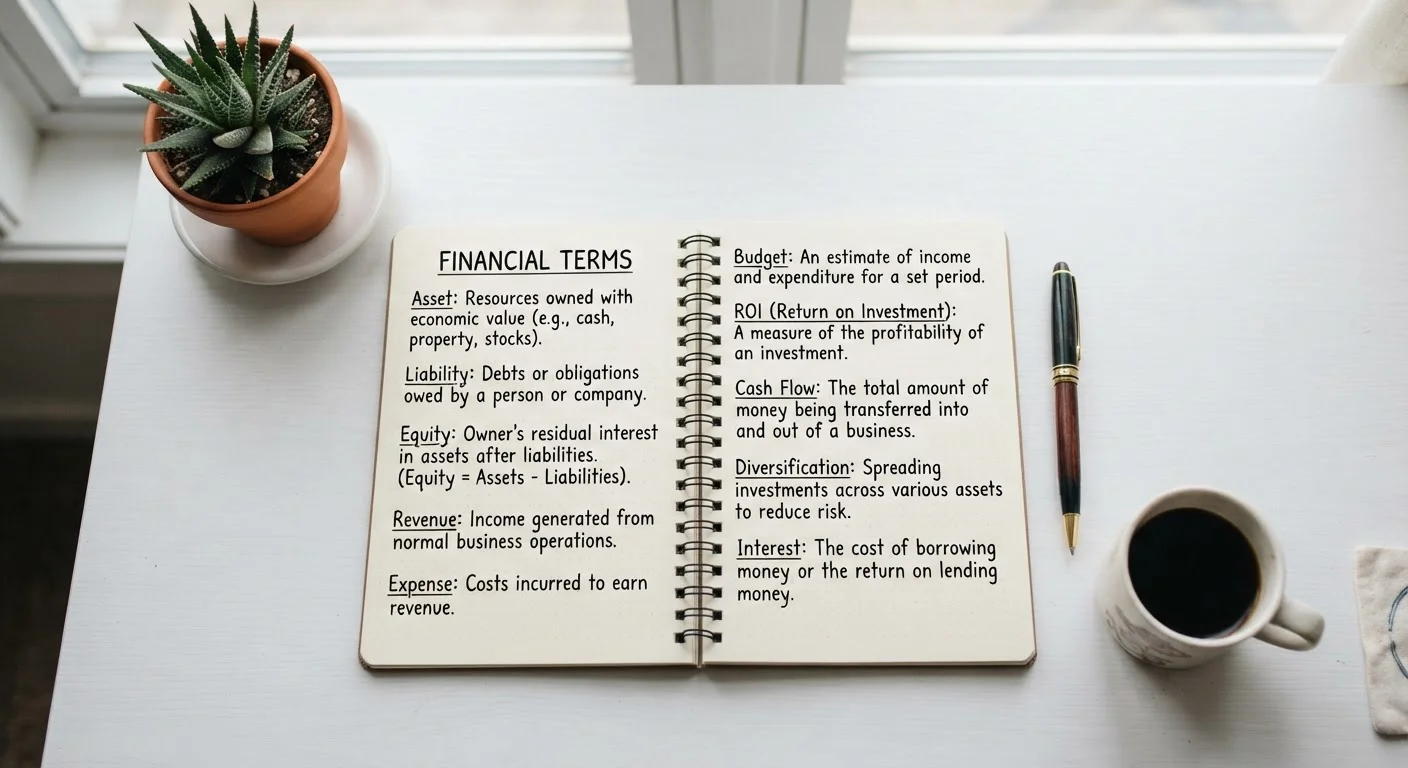 FINANCIAL TERMS
Asset: Resources owned with
economic value (e.g., cash,
property, stocks).
Liability: Debts or obligations
owed by a person or company.
Equity: Owner's residual interest
in assets after liabilities.
(Equity = Assets - Liabilities).
Revenue: Income generated from
normal business operations.
Expense: Costs incurred to earn
revenue.
Budget: An estimate of income
and expenditure for a set period.
ROI (Return on Investment):
A measure of the profitability of
an investment.
Cash Flow: The total amount of
money being transferred into
and out of a business.
Diversification: Spreading
investments across various assets
to reduce risk.
Interest: The cost of borrowing
money or the return on lending
money.